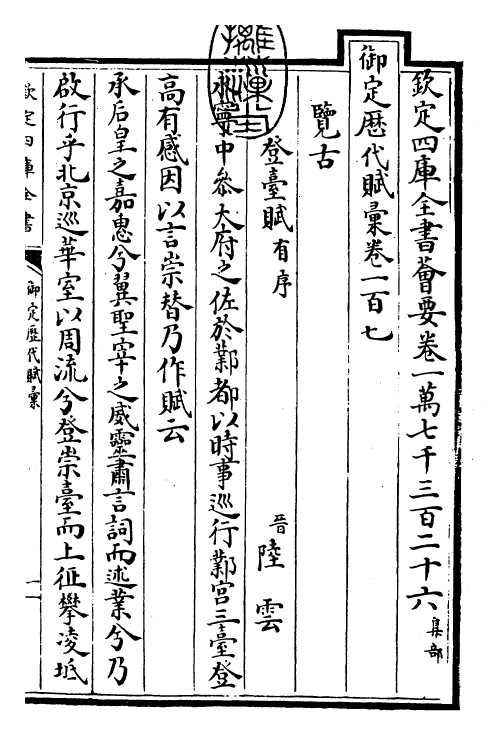 欽定四庫全書薈要卷一萬七千三百二十六集部
御定歴代賦彙卷一百七
覽古
登臺賦有序
晉陸雲
永寧中參大府之佐於鄴都以時事巡行鄴宮三臺登
高有感因以言崇替乃作賦云
承后皇之嘉惠兮翼聖宰之威靈肅言詞而述業兮乃
啟行乎北京巡華室以周流兮登崇臺而上征攀凌坻
欽定四庫全書
御定歴代賦彙
一